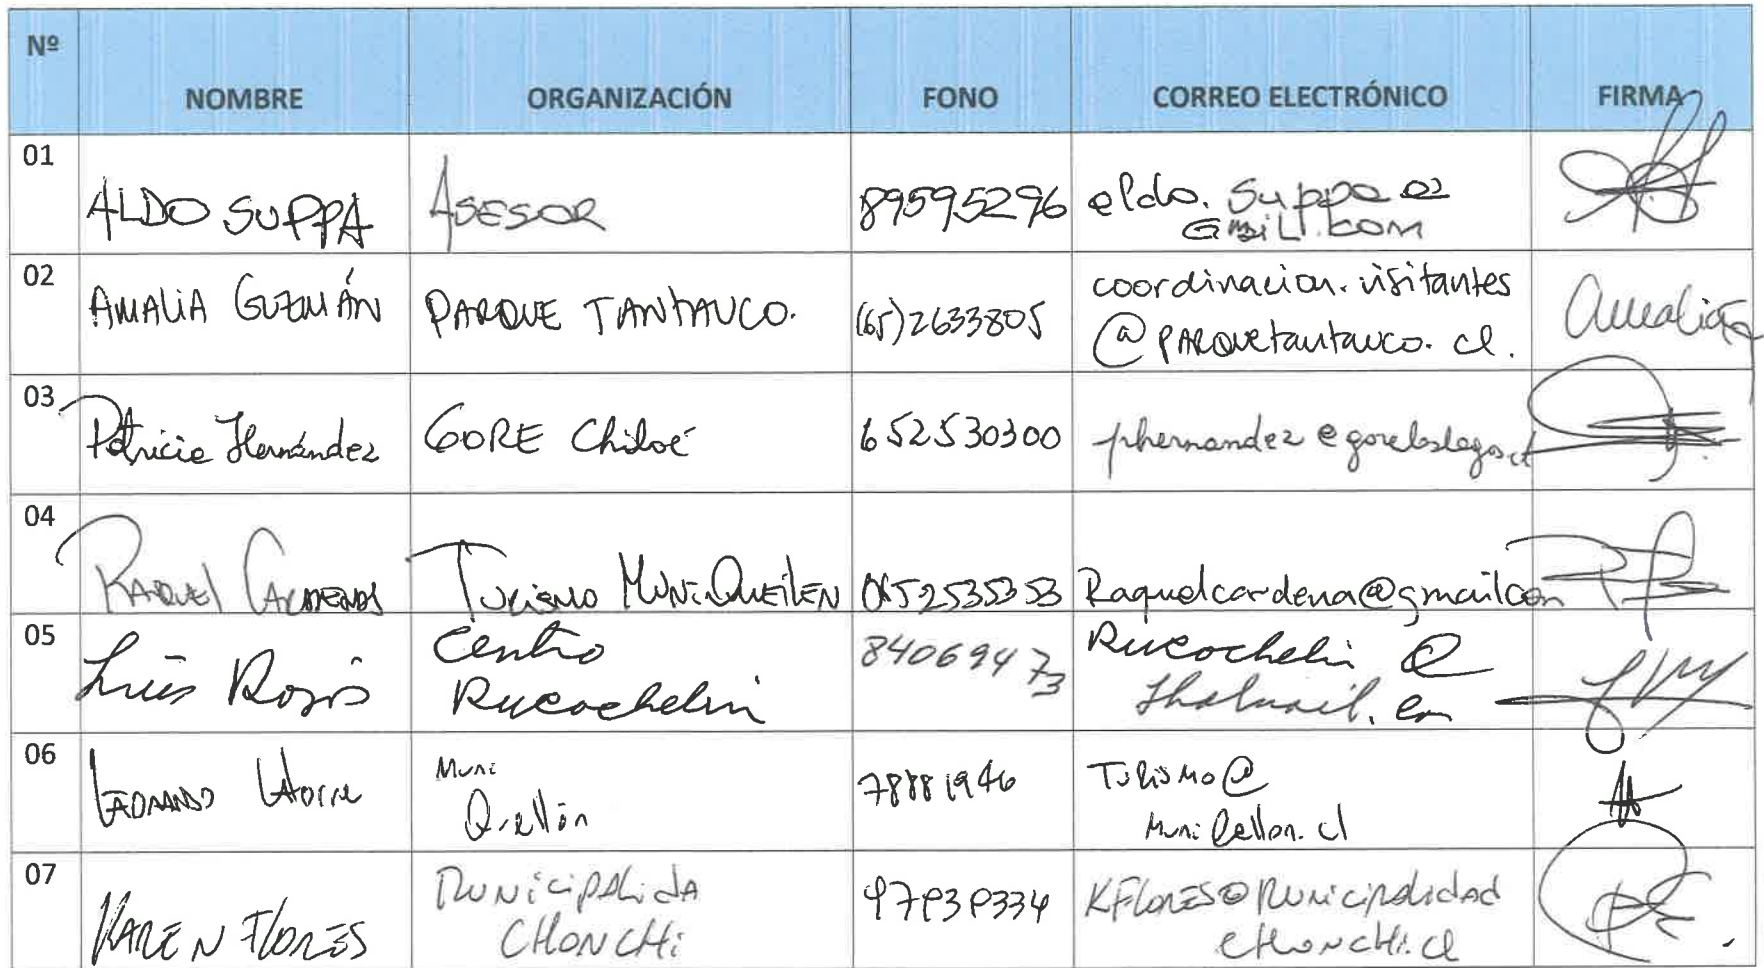 Nº NOMBRE ORGANIZACIÓN FONO CORREO ELECTRÓNICO FIRMA
01 ALDO SUPPA ASESOR 89595296 aldo.suppa@
GmaiL.com
02 AMALIA GUZMÁN PARQUE TANTAUCO. (65)2633805 coordinacion.visitantes
@PARQUEtantauco.cl.
03 Patricia Hernández GORE Chiloé 652530300 phernandez@goreloslagos.cl
04 RAQUEL CARDENAS TURISMO MUNI.QUEILEN 0652535353 Raquelcardena@gmailcom
05 Luis Rojas Centro
Rucachelin 84069473 Rucachelin @
06 Latorre Muni
Quellón 78881946 Turismo@
07 KAREN FLORES MUNiCiPALidA
CHONCHi KFLORES@MUNiCiPALidad
CHONCHi.cl